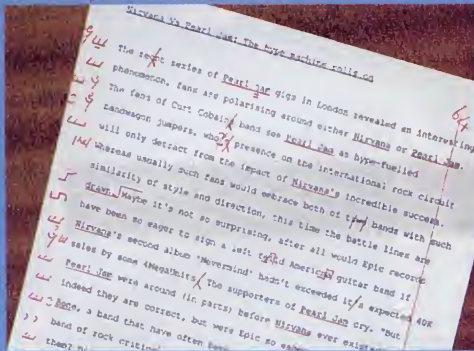 Nirvana Vs Pearl Jam: The hype machine rolls on
The series of Pearl Jam gigs in London revealed an interesting
phenomenon, fans are polarising around either Nirvana or Pearl Jam.
The fans of Curt Cobain's band see Pearl Jam as hype-fuelled
bandwagon jumpers, who's presence on the international rock circuit
will only detract from the impact of Nirvana's incredible success.
Whereas usually such fans would embrace both of bands with such
similarity of style and direction, this time the battle lines are
drawn. Maybe it's not so surprising, after all would Epic records
have been so eager to sign a left American guitar band if
Nirvana's second album 'Nevermind' hadn't exceeded it's expected 40K
sales by some 4Megabits. The supporters of Pearl Jam cry. "But
Pearl Jam were around (in parts) before Nirvana ever
indeed they are correct, but were Epic so
Bone, a band that have often
band of rock